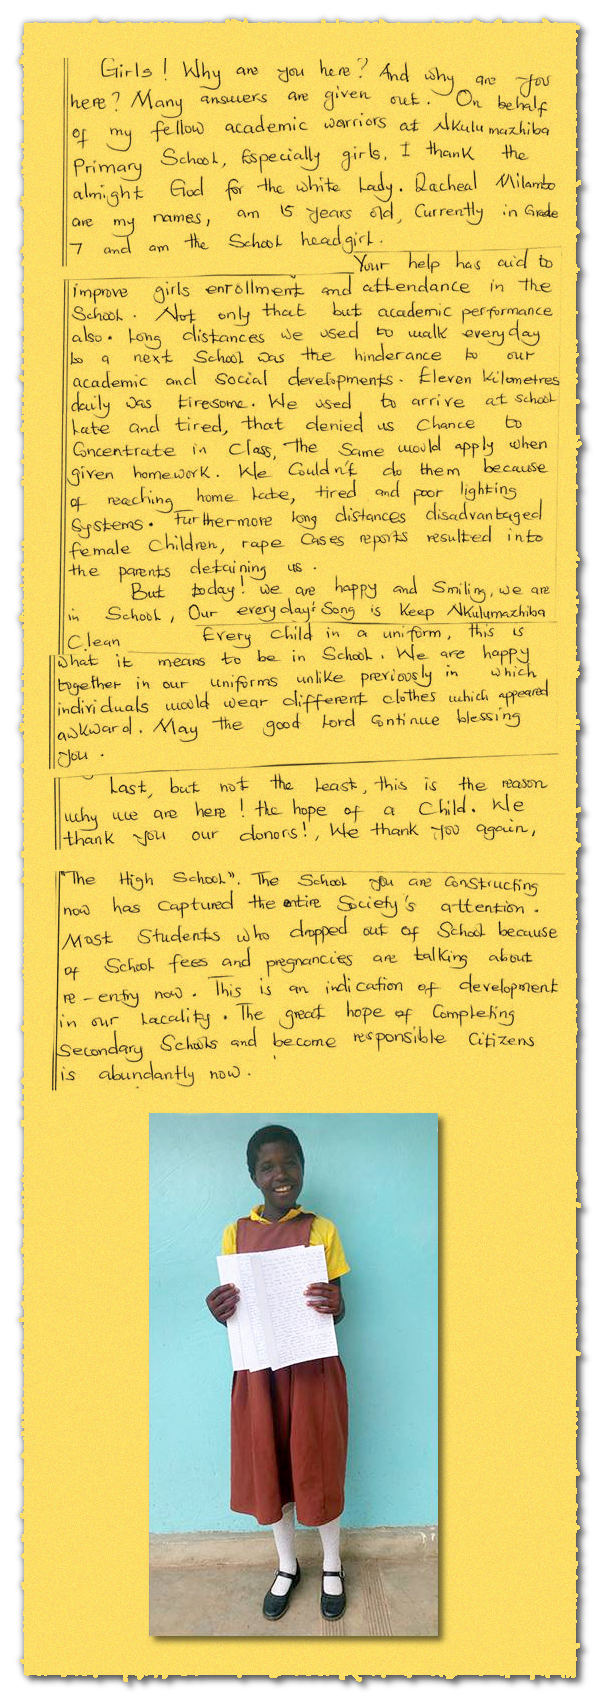 Girls! Why are you here? And why are you
here? Many answers are given out. On behalf
of my fellow academic warriors at Nkulumazhiba
Primary School, Especially girls, I thank the
almight God for the white Lady. Racheal Milambo
are my names, am 15 years old, Currently in Grade
7 and am the School headgirl.
Your help has aid to
improve girls enrollment and attendance in the
School. Not only that but academic performance
also. Long distances we used to walk everyday
to a next School was the hinderance to our
academic and social developments. Eleven Kilometres
daily was tiresome. We used to arrive at school
Late and tired, that denied us Chance to
Concentrate in Class, The Same would apply when
given homework. We Couldn't do them because
of reaching home Late, tired and poor lighting
Systems. Furthermore long distances disadvantaged
female Children, rape Cases reports resulted into
the parents detaining us.
But today! we are happy and Smiling, we are
in School, Our everyday's Song is Keep Nkulumazhiba
Clean Every Child in a uniform, this is
what it means to be in School. We are happy
together in our uniforms unlike previously in which
individuals would wear different clothes which appeared
awkward. May the good Lord Continue blessing
you.
Last, but not the Least, this is the reason
why we are here! the hope of a Child. We
thank you our donors!, We thank you again,
"The High School". The School you are Constructing
now has Captured the entire Society's attention.
Most Students who dropped out of School because
of School fees and pregnancies are talking about
re-entry now. This is an indication of development
in our Lacality. The great hope of Completing
Secondary Schools and become responsible Citizens
is abundantly now.